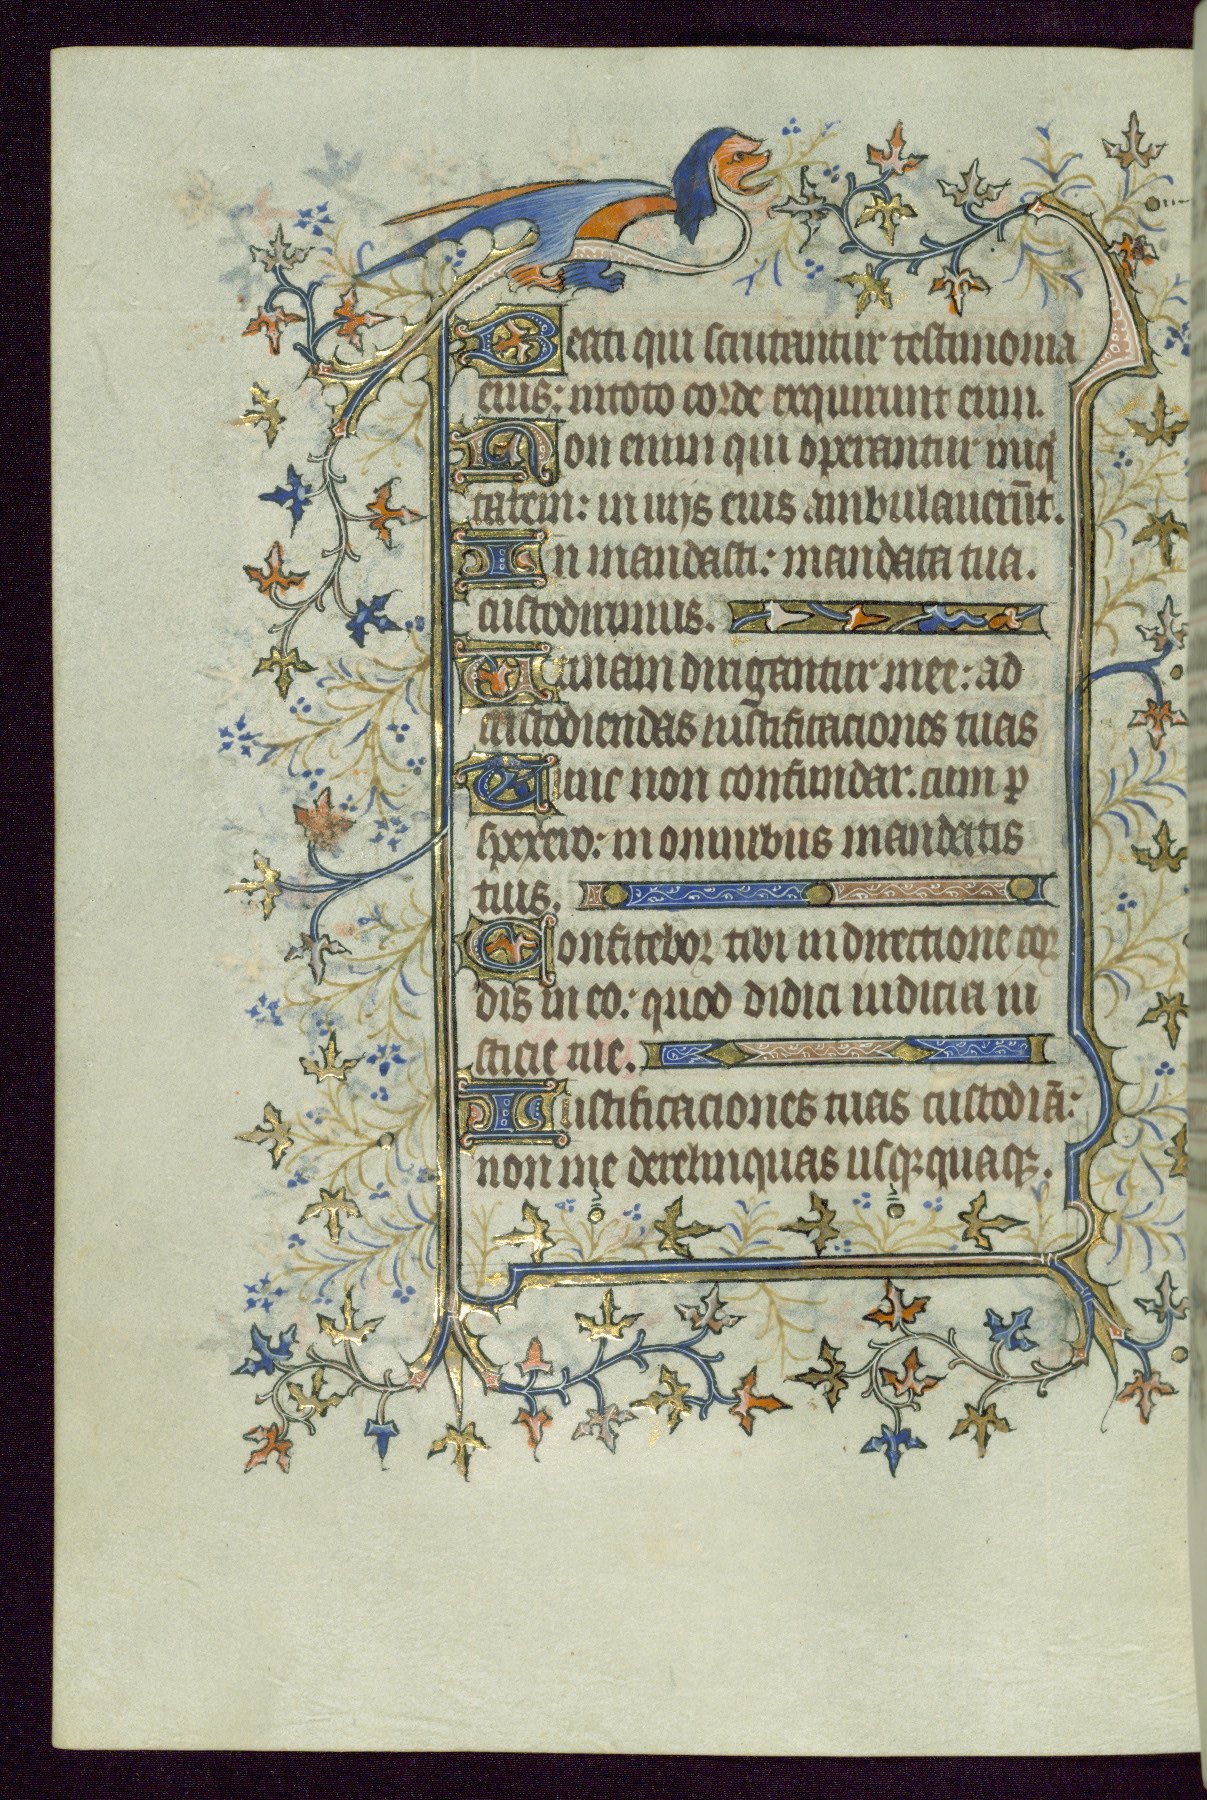 Beati qui scrutantur testimonia
eius: in toto corde exquirunt eum.
Non enim qui operantur iniq̇
tatem: in uijs eius ambulauerūt.
Tu mandasti: mandata tua
custodiri nimis.
Utinam dirigantur uie mee: ad
custodiendas iustificaciones tuas
Tunc non confundar. cum ꝑ
spexero: in omnibus mandatis
tuis.
Confitebor tibi in directione cor
dis in eo: quod didici iudicia iu
sticie tue.
Iustificaciones tuas custodiā:
non me derelinquas usqꝫ quaqꝫ.